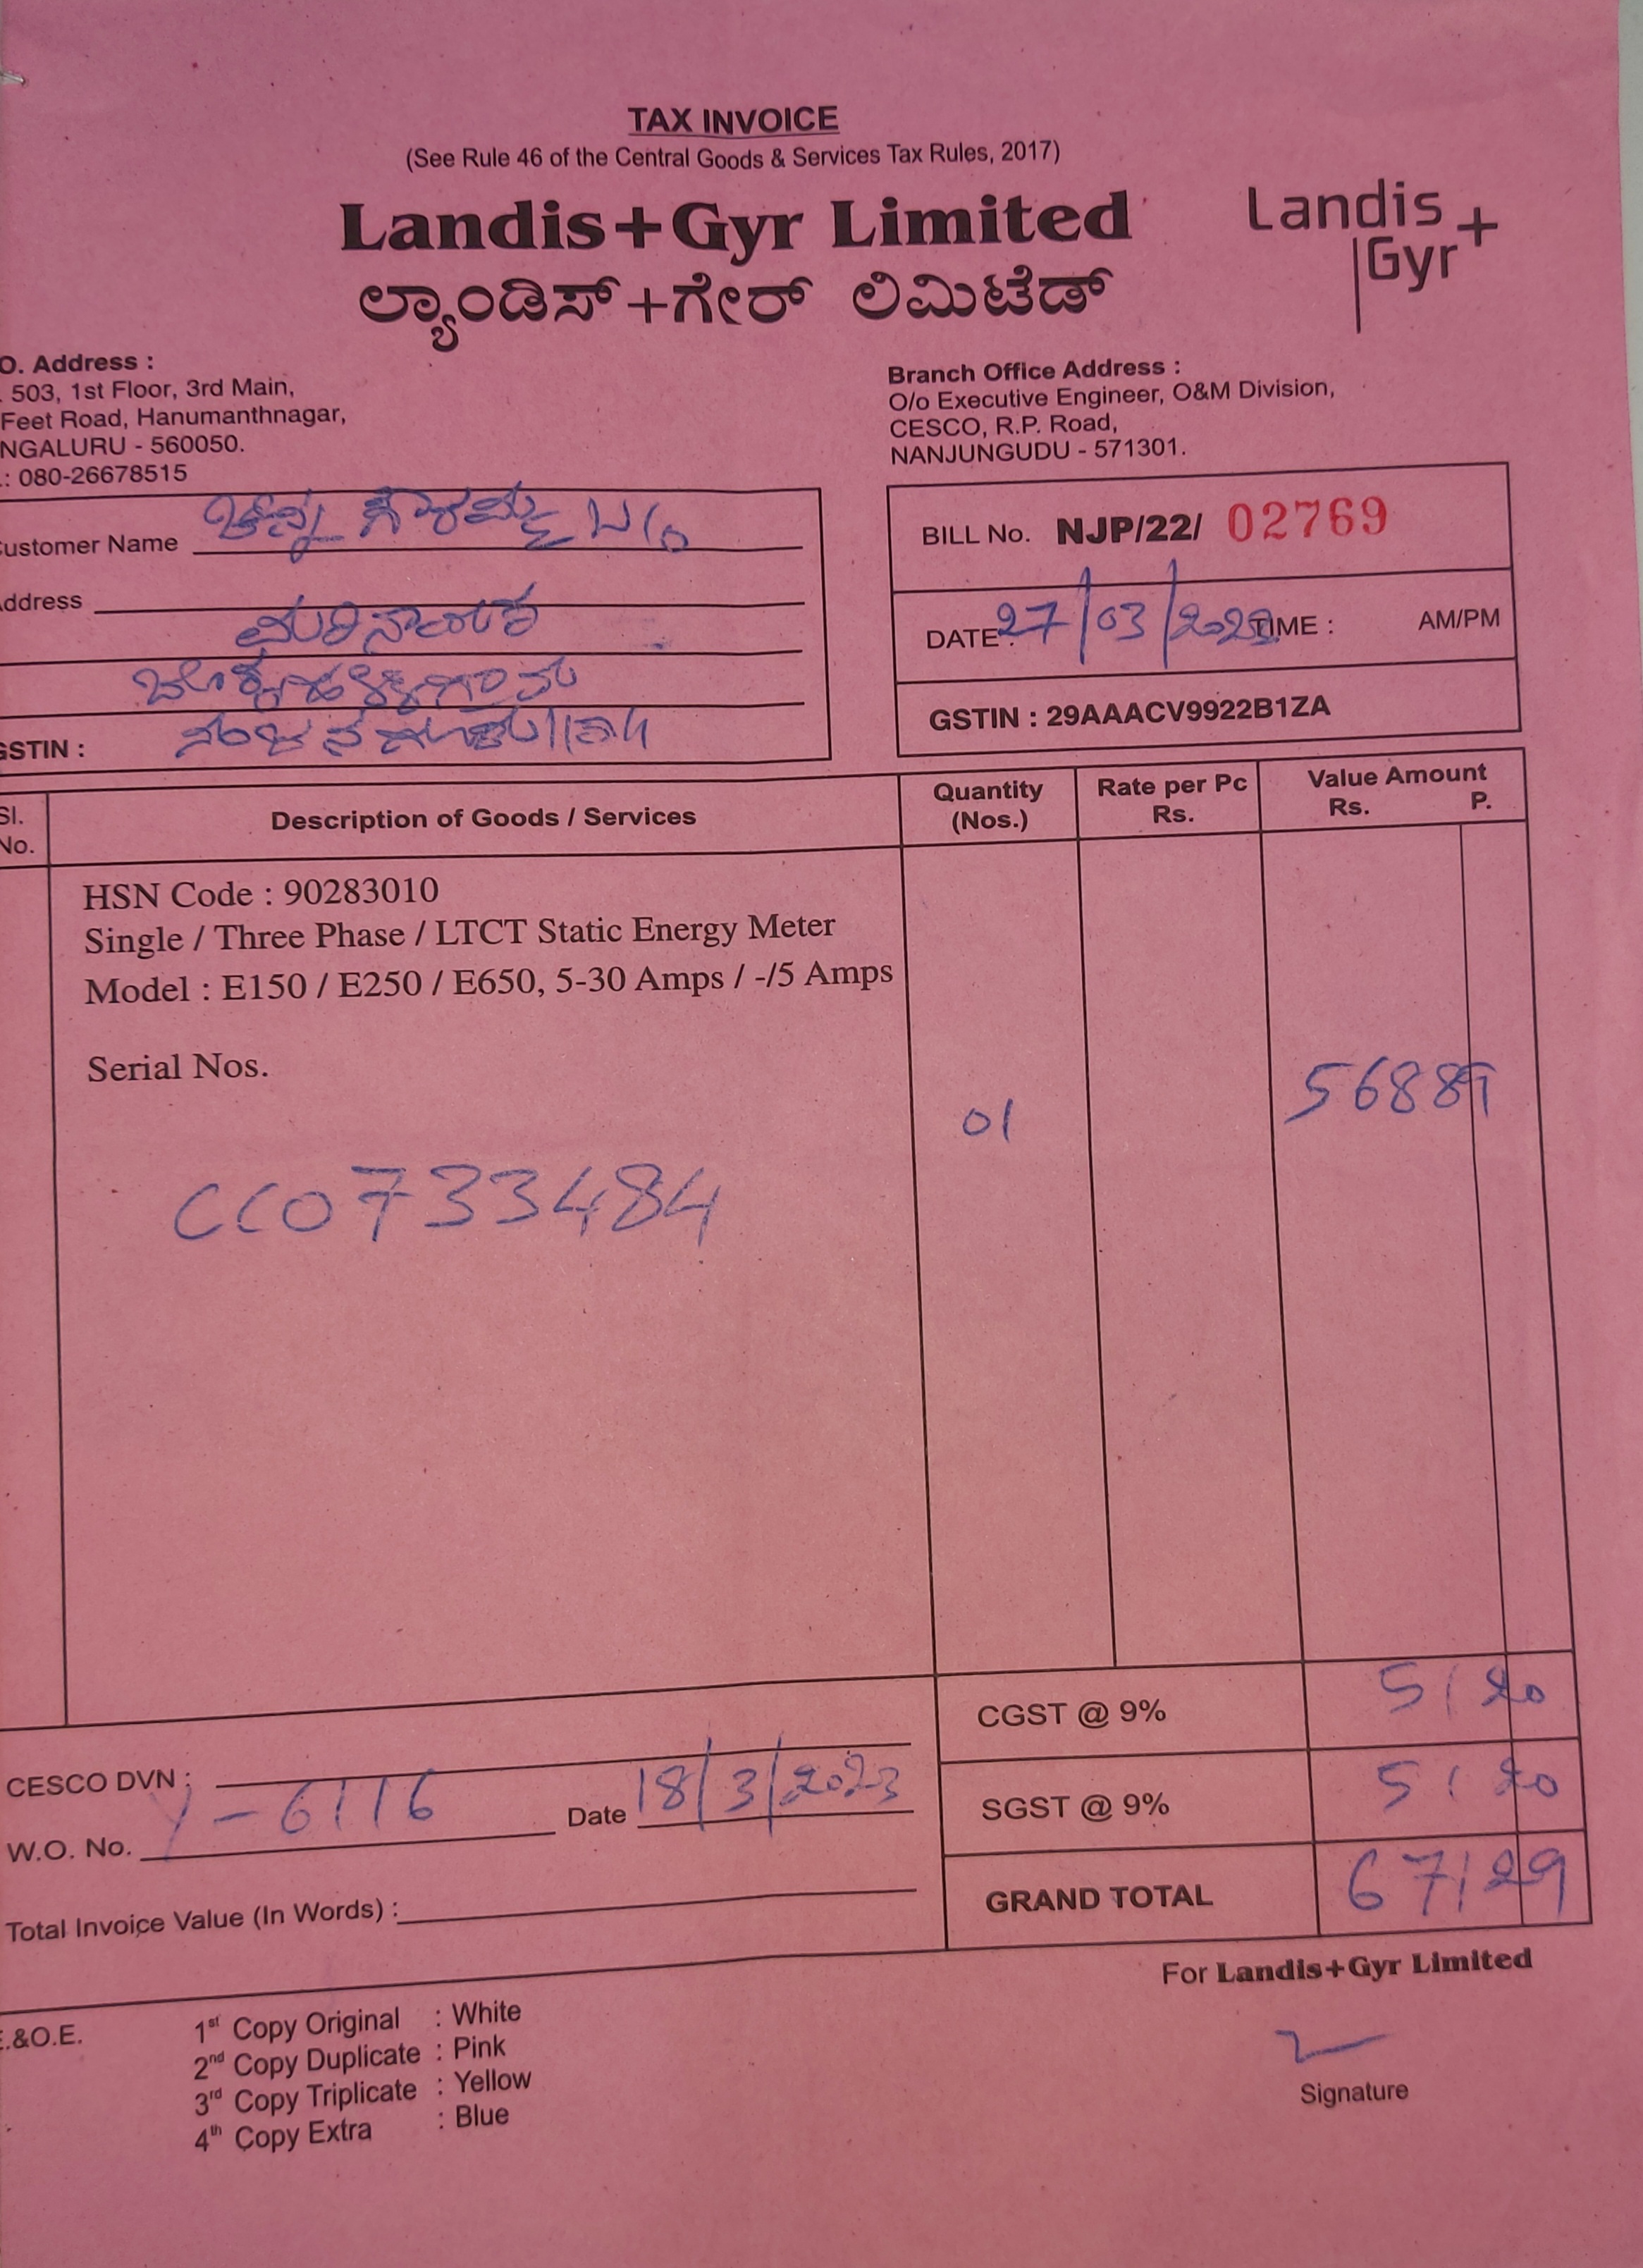 TAX INVOICE
(See Rule 46 of the Central Goods & Services Tax Rules, 2017)
Landis+Gyr Limited
Landis+
Gyr
ಲ್ಯಾಂಡಿಸ್+ಗೇರ್ ಲಿಮಿಟೆಡ್
O. Address :
503, 1st Floor, 3rd Main,
Feet Road, Hanumanthnagar,
NGALURU - 560050.
.: 080-26678515
Branch Office Address :
O/o Executive Engineer, O&M Division,
CESCO, R.P. Road,
NANJUNGUDU - 571301.
ustomer Name
ddress
GSTIN :
BILL No. NJP/22/ 02769
DATE: 27/03/2023 TIME : AM/PM
GSTIN : 29AAACV9922B1ZA
Sl. No. Description of Goods / Services Quantity (Nos.) Rate per Pc Rs. Value Amount Rs. P.
HSN Code : 90283010
Single / Three Phase / LTCT Static Energy Meter
Model : E150 / E250 / E650, 5-30 Amps / -/5 Amps
Serial Nos.
01 56889
CC0733484
CGST @ 9% 51 20
SGST @ 9% 51 20
GRAND TOTAL 671 29
CESCO DVN :
W.O. No. Y-6116 Date 18/3/2023
Total Invoice Value (In Words) :
For Landis+Gyr Limited
Signature
E.&O.E.
1st Copy Original : White
2nd Copy Duplicate : Pink
3rd Copy Triplicate : Yellow
4th Copy Extra : Blue